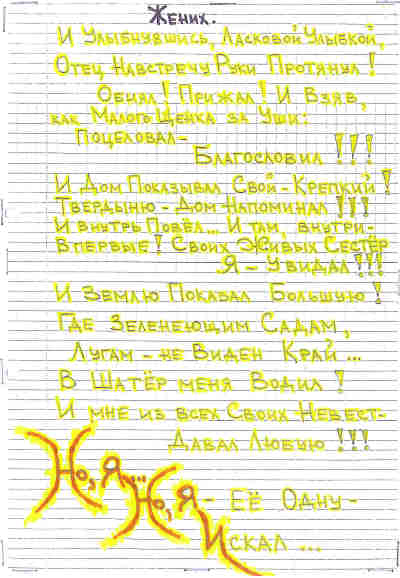 Жених.
И Улыбнувшись, Ласковой Улыбкой,
Отец Навстречу Руки Протянул!
Обнял! Прижал! И Взяв,
как Малого Щенка за Уши:
поцеловал-
Благословил!!!
И Дом Показывал Свой - Крепкий!
Твердыню - Дом напоминал!!!
И внутрь Повёл... И там, внутри-
Впервые! Своих Живых Сестёр
Я - Увидал!!!
И Землю Показал Большую!
Где Зеленеющим Садам,
Лугам - не Виден Край...
В Шатёр меня Водил!
И мне из всех Своих Невест-
Давал Любую!!!
Но, Я...
Но, Я - Её Одну -
Искал...